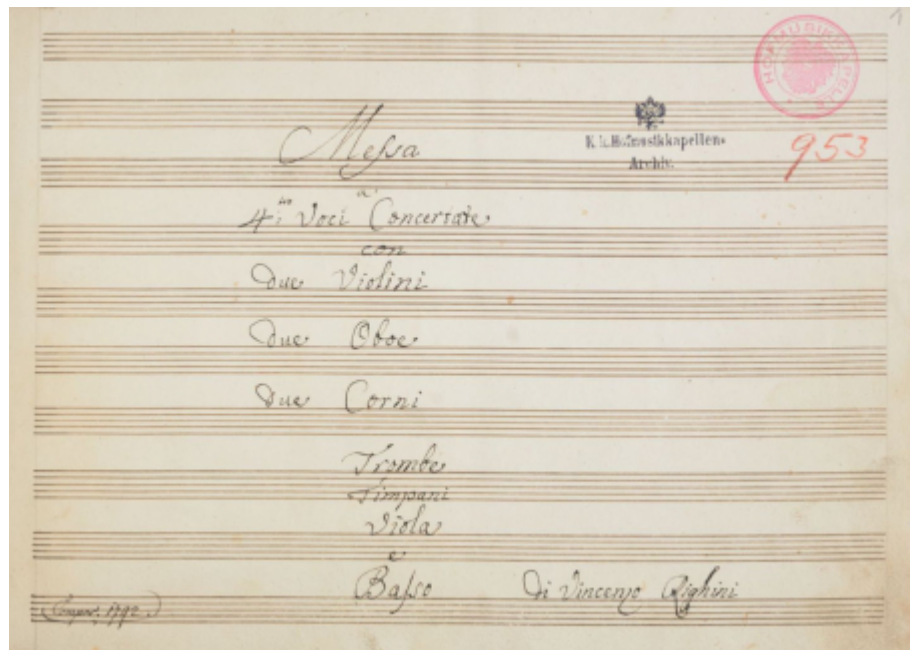 1
HOFMUSIKKAPELLE
K. k. Hofmusikkapellen-
Archiv.
953
Messa
a
4.ᵗʳᵒ Voci Concertate
con
Due Violini
Due Oboe
Due Corni
Trombe
Timpani
Viola
e
Basso Di Vincenzo Righini
(Compos: 1790.)